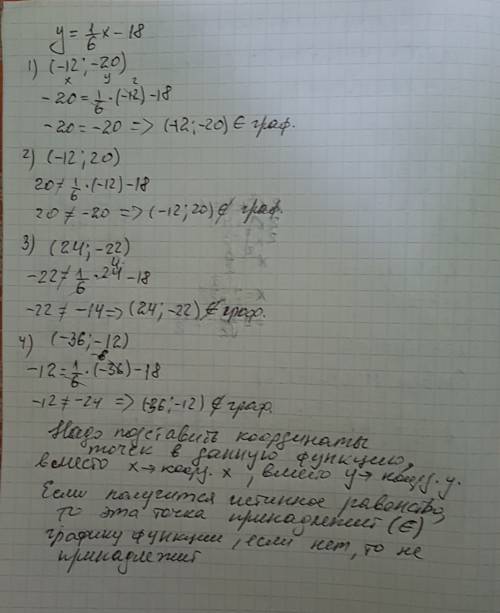 y = 1/6 x - 18
1) (-12; -20)
x y 2
-20 = 1/6 · (-12) - 18
-20 = -20 => (-12; -20) ∈ граф.
2) (-12; 20)
20 ≠ 1/6 · (-12) - 18
20 ≠ -20 => (-12; 20) ∉ граф.
3) (24; -22)
4
-22 ≠ 1/6 · 24 - 18
-22 ≠ -14 => (24; -22) ∉ граф.
4) (-36; -12)
-6
-12 = 1/6 · (-36) - 18
-12 ≠ -24 => (36; -12) ∉ граф.
Надо подставить координаты
точек в данную функцию,
вместо x → коорд. x, вместо y → коорд. y.
Если получится истинное равенство,
то эта точка принадлежит (∈)
графику функции, если нет, то не
принадлежит